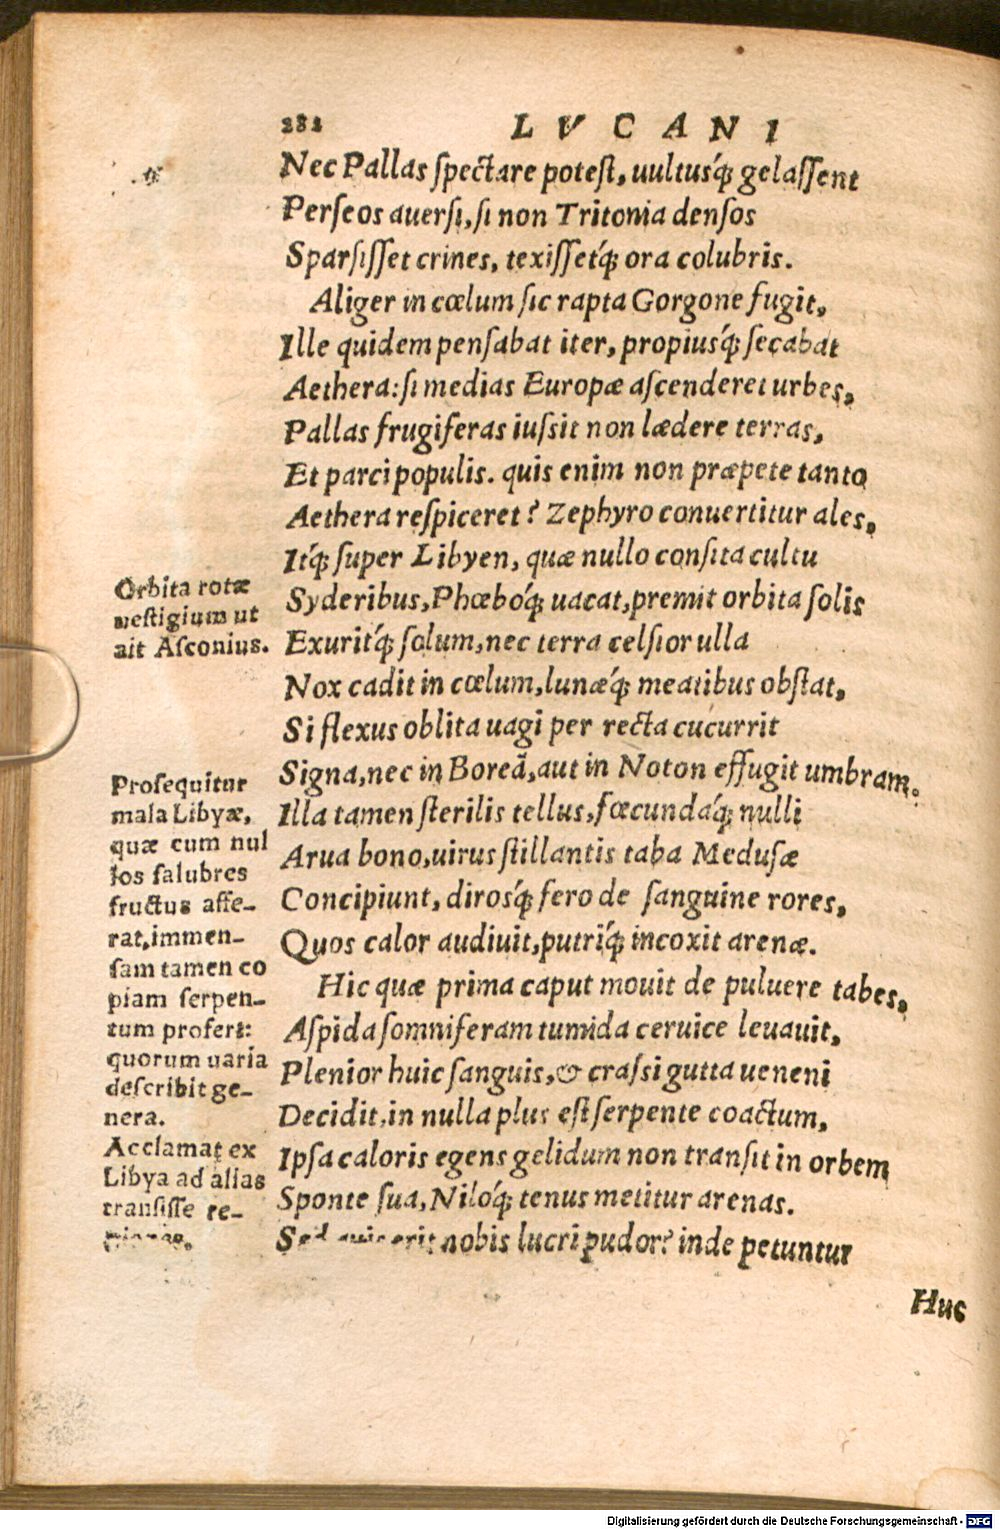 282 LVCANI
Nec Pallas spectare potest, uultusq́; gelassent
Perseos auersi, si non Tritonia densos
Sparsisset crines, texissetq́; ora colubris.
Aliger in cœlum sic rapta Gorgone fugit,
Ille quidem pensabat iter, propiusq́; secabat
Aethera: si medias Europæ ascenderet urbes,
Pallas frugiferas iussit non lædere terras,
Et parci populis. quis enim non præpete tanto
Aethera respiceret? Zephyro conuertitur ales,
Itq́; super Libyen, quæ nullo consita cultu
Syderibus, Phœboq́; uacat, premit orbita solis
Exuritq́; solum, nec terra celsior ulla
Nox cadit in cœlum, lunæq́; meatibus obstat,
Si flexus oblita uagi per recta cucurrit
Signa, nec in Boreã, aut in Noton effugit umbram.
Illa tamen sterilis tellus, fœcundaq́; nulli
Arua bono, uirus stillantis taba Medusæ
Concipiunt, dirosq́; fero de sanguine rores,
Quos calor audiuit, putriq́; incoxit arenæ.
Hic quæ prima caput mouit de puluere tabes,
Aspida somniferam tumida ceruice leuauit,
Plenior huic sanguis, & crassi gutta ueneni
Decidit, in nulla plus est serpente coactum,
Ipsa caloris egens gelidum non transit in orbem
Sponte sua, Niloq́; tenus metitur arenas.
Sed quis erit nobis lucri pudor? inde petuntur
Huc
Orbita rotæ
uestigium ut
ait Asconius.
Prosequitur
mala Libyæ,
quæ cum nul
los salubres
fructus affe-
rat, immen-
sam tamen co
piam serpen-
tum profert:
quorum uaria
describit ge-
nera.
Acclamat ex
Libya ad alias
transisse re-
Digitalisierung gefördert durch die Deutsche Forschungsgemeinschaft - DFG